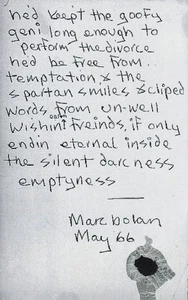 he'd keept the goofy
geni long enough to
perform the divorce
he'd be free from..
temptation & the
spartan smiles & cliped
words from un-well
wishini freinds, if only
endin eternal inside
the silent darcness
emptyness
Marc bolan
May 66